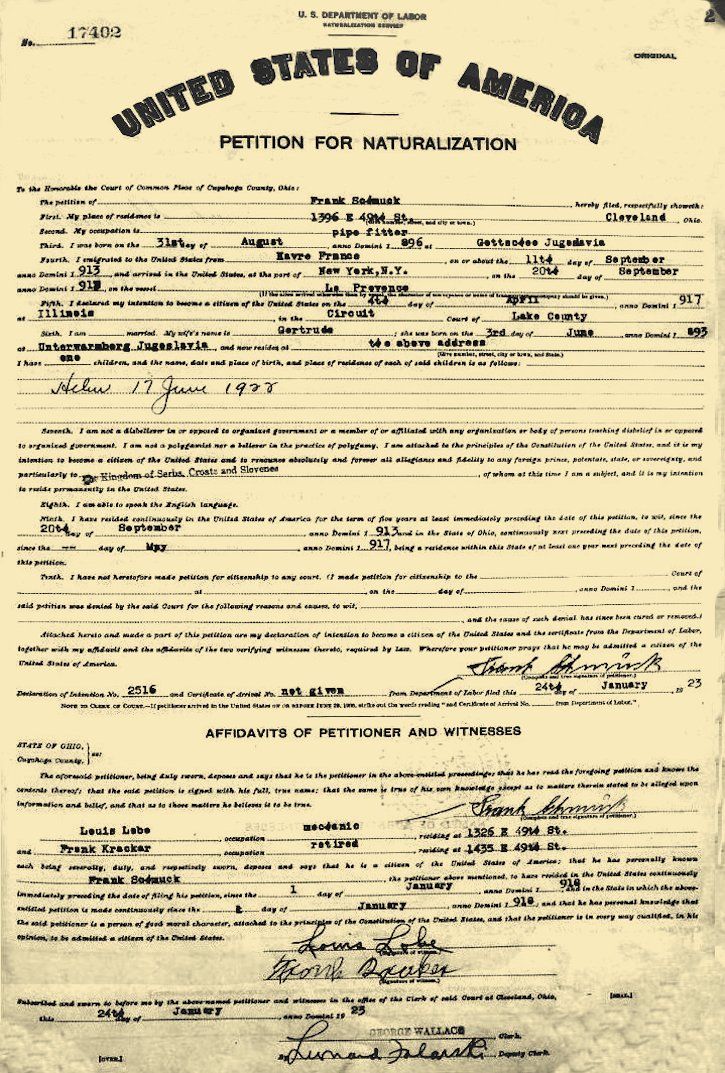 U. S. DEPARTMENT OF LABOR
NATURALIZATION SERVICE
No. 17402
2
ORIGINAL
UNITED STATES OF AMERICA
PETITION FOR NATURALIZATION
To the Honorable the Court of Common Pleas of Cuyahoga County, Ohio:
The petition of Frank Scdmuck, hereby filed, respectfully showeth:
First. My place of residence is 1396 E 49t4 St. (Give number, street, city or town.) Cleveland, Ohio.
Second. My occupation is pipe fitter
Third. I was born on the 31st day of August, anno Domini 1 896 at Gottscdee Jugoslavia
Fourth. I emigrated to the United States from Havre France on or about the 11t4 day of September
anno Domini 1 913 and arrived in the United States, at the port of New York,N.Y. on the 20t4 day of September
anno Domini 1 913, on the vessel La Provence
(If the alien arrived otherwise than by vessel, the character of conveyance or name of transportation company should be given.)
Fifth. I declared my intention to become a citizen of the United States on the 4t4 day of April, anno Domini 1 917
at Illinois in the Circuit Court of Lake County
Sixth. I am married. My wife's name is Gertrude; she was born on the 3rd day of June, anno Domini 1 893
at Unterwarmberg Jugoslavia, and now resides at t4e above address (Give number, street, city or town, and State.)
I have one children, and the name, date and place of birth, and place of residence of each of said children is as follows:
Helen 17 June 1922
Seventh. I am not a disbeliever in or opposed to organized government or a member of or affiliated with any organization or body of persons teaching disbelief in or opposed
to organized government. I am not a polygamist nor a believer in the practice of polygamy. I am attached to the principles of the Constitution of the United States, and it is my
intention to become a citizen of the United States and to renounce absolutely and forever all allegiance and fidelity to any foreign prince, potentate, state, or sovereignty, and
particularly to The Kingdom of Serbs, Croats and Slovenes, of whom at this time I am a subject, and it is my intention
to reside permanently in the United States.
Eighth. I am able to speak the English language.
Ninth. I have resided continuously in the United States of America for the term of five years at least immediately preceding the date of this petition, to wit, since the
20t4 day of September, anno Domini 1 913 and in the State of Ohio, continuously next preceding the date of this petition,
since the -- day of May, anno Domini 1 917, being a residence within this State of at least one year next preceding the date of
this petition.
Tenth. I have not heretofore made petition for citizenship to any court. (I made petition for citizenship to the Court of
at, on the day of, anno Domini 1, and the
said petition was denied by the said Court for the following reasons and causes, to wit,
, and the cause of such denial has since been cured or removed.)
Attached hereto and made a part of this petition are my declaration of intention to become a citizen of the United States and the certificate from the Department of Labor,
together with my affidavit and the affidavits of the two verifying witnesses thereto, required by law. Wherefore your petitioner prays that he may be admitted a citizen of the
United States of America.
Frank Schmuck
(Complete and true signature of petitioner.)
Declaration of Intention No. 2516 and Certificate of Arrival No. not given from Department of Labor filed this 24t4 day of January 19 23
NOTE TO CLERK OF COURT.—If petitioner arrived in the United States ON OR BEFORE JUNE 29, 1906, strike out the words reading "and Certificate of Arrival No. from Department of Labor."
AFFIDAVITS OF PETITIONER AND WITNESSES
STATE OF OHIO,
Cuyahoga County, } ss:
The aforesaid petitioner, being duly sworn, deposes and says that he is the petitioner in the above-entitled proceedings; that he has read the foregoing petition and knows the
contents thereof; that the said petition is signed with his full, true name; that the same is true of his own knowledge except as to matters therein stated to be alleged upon
information and belief, and that as to those matters he believes it to be true.
Frank Schmuck
(Complete and true signature of petitioner.)
Louis Lobe, occupation mec4anic, residing at 1326 E 49t4 St.
and Frank Krackar, occupation retired, residing at 1435 E 49t4 St.
each being severally, duly, and respectively sworn, deposes and says that he is a citizen of the United States of America; that he has personally known
Frank Scdmuck, the petitioner above mentioned, to have resided in the United States continuously
immediately preceding the date of filing his petition, since the 1 day of January, anno Domini 1 918 and in the State in which the above-
entitled petition is made continuously since the 1 day of January, anno Domini 1 918, and that he has personal knowledge that
the said petitioner is a person of good moral character, attached to the principles of the Constitution of the United States, and that the petitioner is in every way qualified, in his
opinion, to be admitted a citizen of the United States.
Louis Lobe
(Signature of witness.)
Frank Kracker
(Signature of witness.)
Subscribed and sworn to before me by the above-named petitioner and witnesses in the office of the Clerk of said Court at Cleveland, Ohio,
this 24t4 day of January, anno Domini 19 23
[SEAL.]
GEORGE WALLACE, Clerk.
[OVER.]
By Leonard, Deputy Clerk.